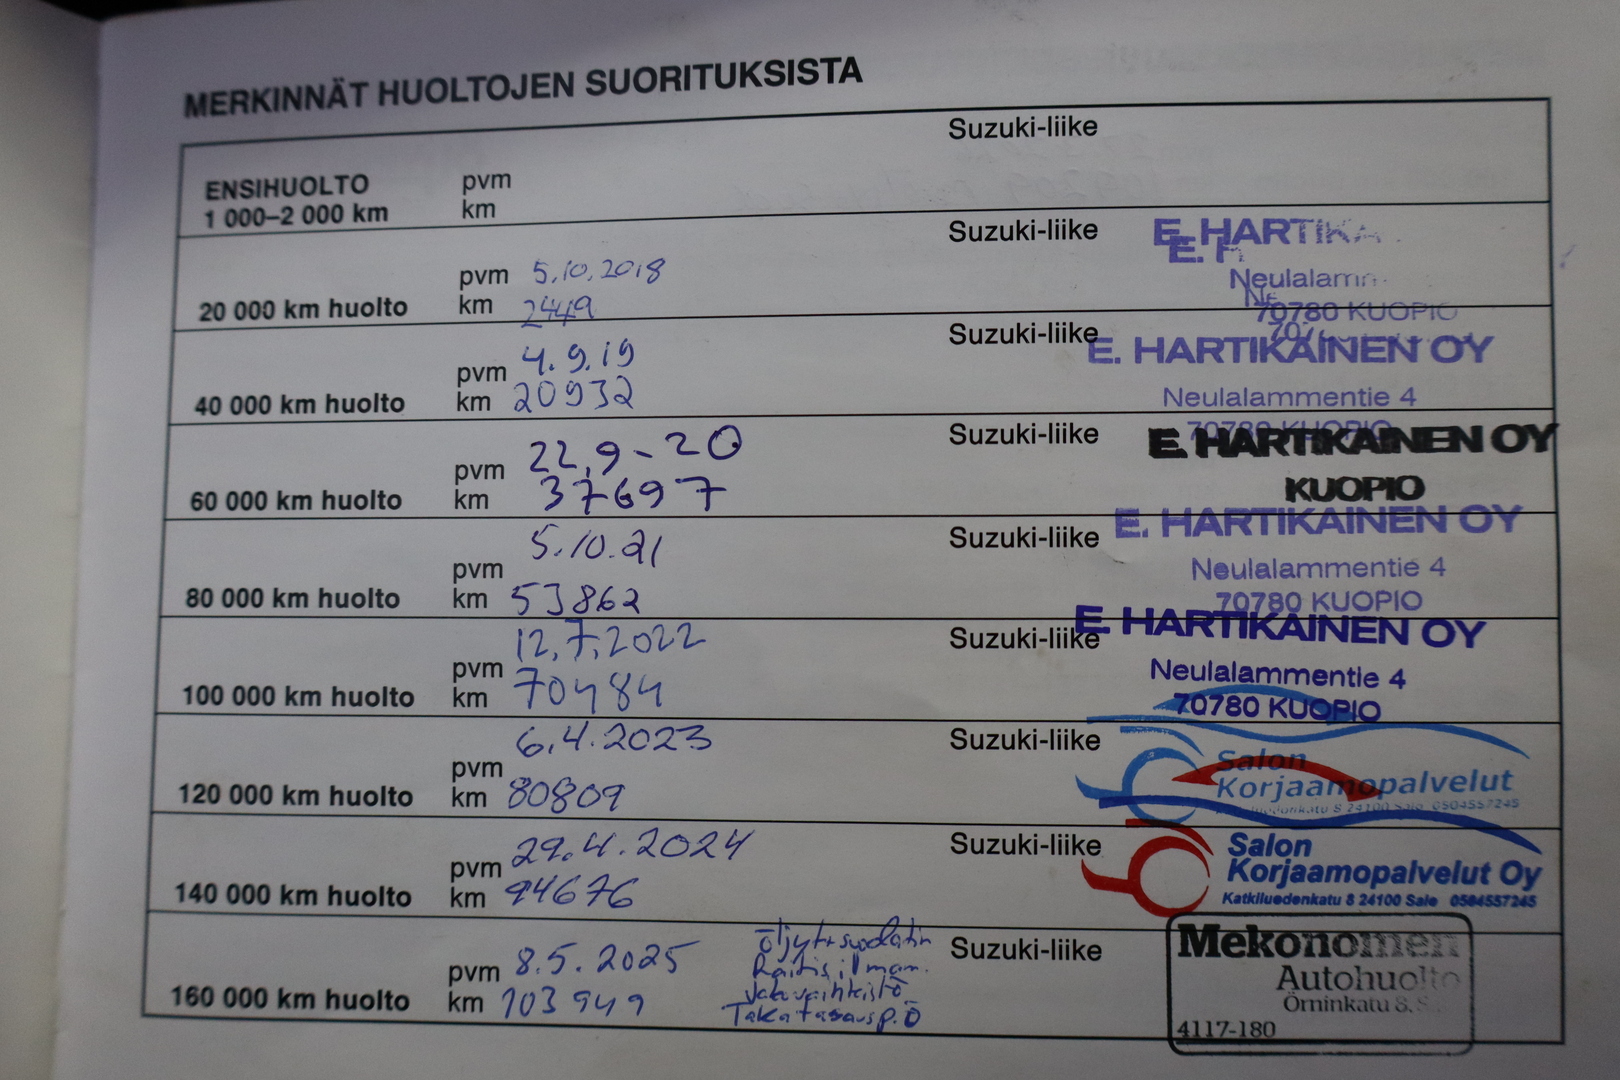 MERKINNÄT HUOLTOJEN SUORITUKSISTA
Suzuki-liike
ENSIHUOLTO pvm
1 000–2 000 km km
Suzuki-liike E. HARTIKA
E. H
pvm 5.10.2018 Neulalamm
20 000 km huolto km 2449 70780 KUOPIO
Suzuki-liike E. HARTIKAINEN OY
pvm 4.9.19
40 000 km huolto km 20932 Neulalammentie 4
70780 KUOPIO
Suzuki-liike E. HARTIKAINEN OY
pvm 22.9-20
60 000 km huolto km 37697 KUOPIO
Suzuki-liike E. HARTIKAINEN OY
pvm 5.10.21 Neulalammentie 4
80 000 km huolto km 53862 70780 KUOPIO
Suzuki-liike E. HARTIKAINEN OY
pvm 12.7.2022 Neulalammentie 4
100 000 km huolto km 70484 70780 KUOPIO
Suzuki-liike Salon
pvm 6.4.2023 Korjaamopalvelut
120 000 km huolto km 80809 8 24100 Salo 0504557245
Suzuki-liike Salon
pvm 29.4.2024 Korjaamopalvelut Oy
140 000 km huolto km 94676 Katkiluodonkatu 8 24100 Salo 0504557245
öljyt+suodatin Suzuki-liike Mekonomen
pvm 8.5.2025 Raitisilman. Autohuolto
160 000 km huolto km 103949 Jakovaihteistö Örninkatu 8.
Takatasausp.Ö 4117-180